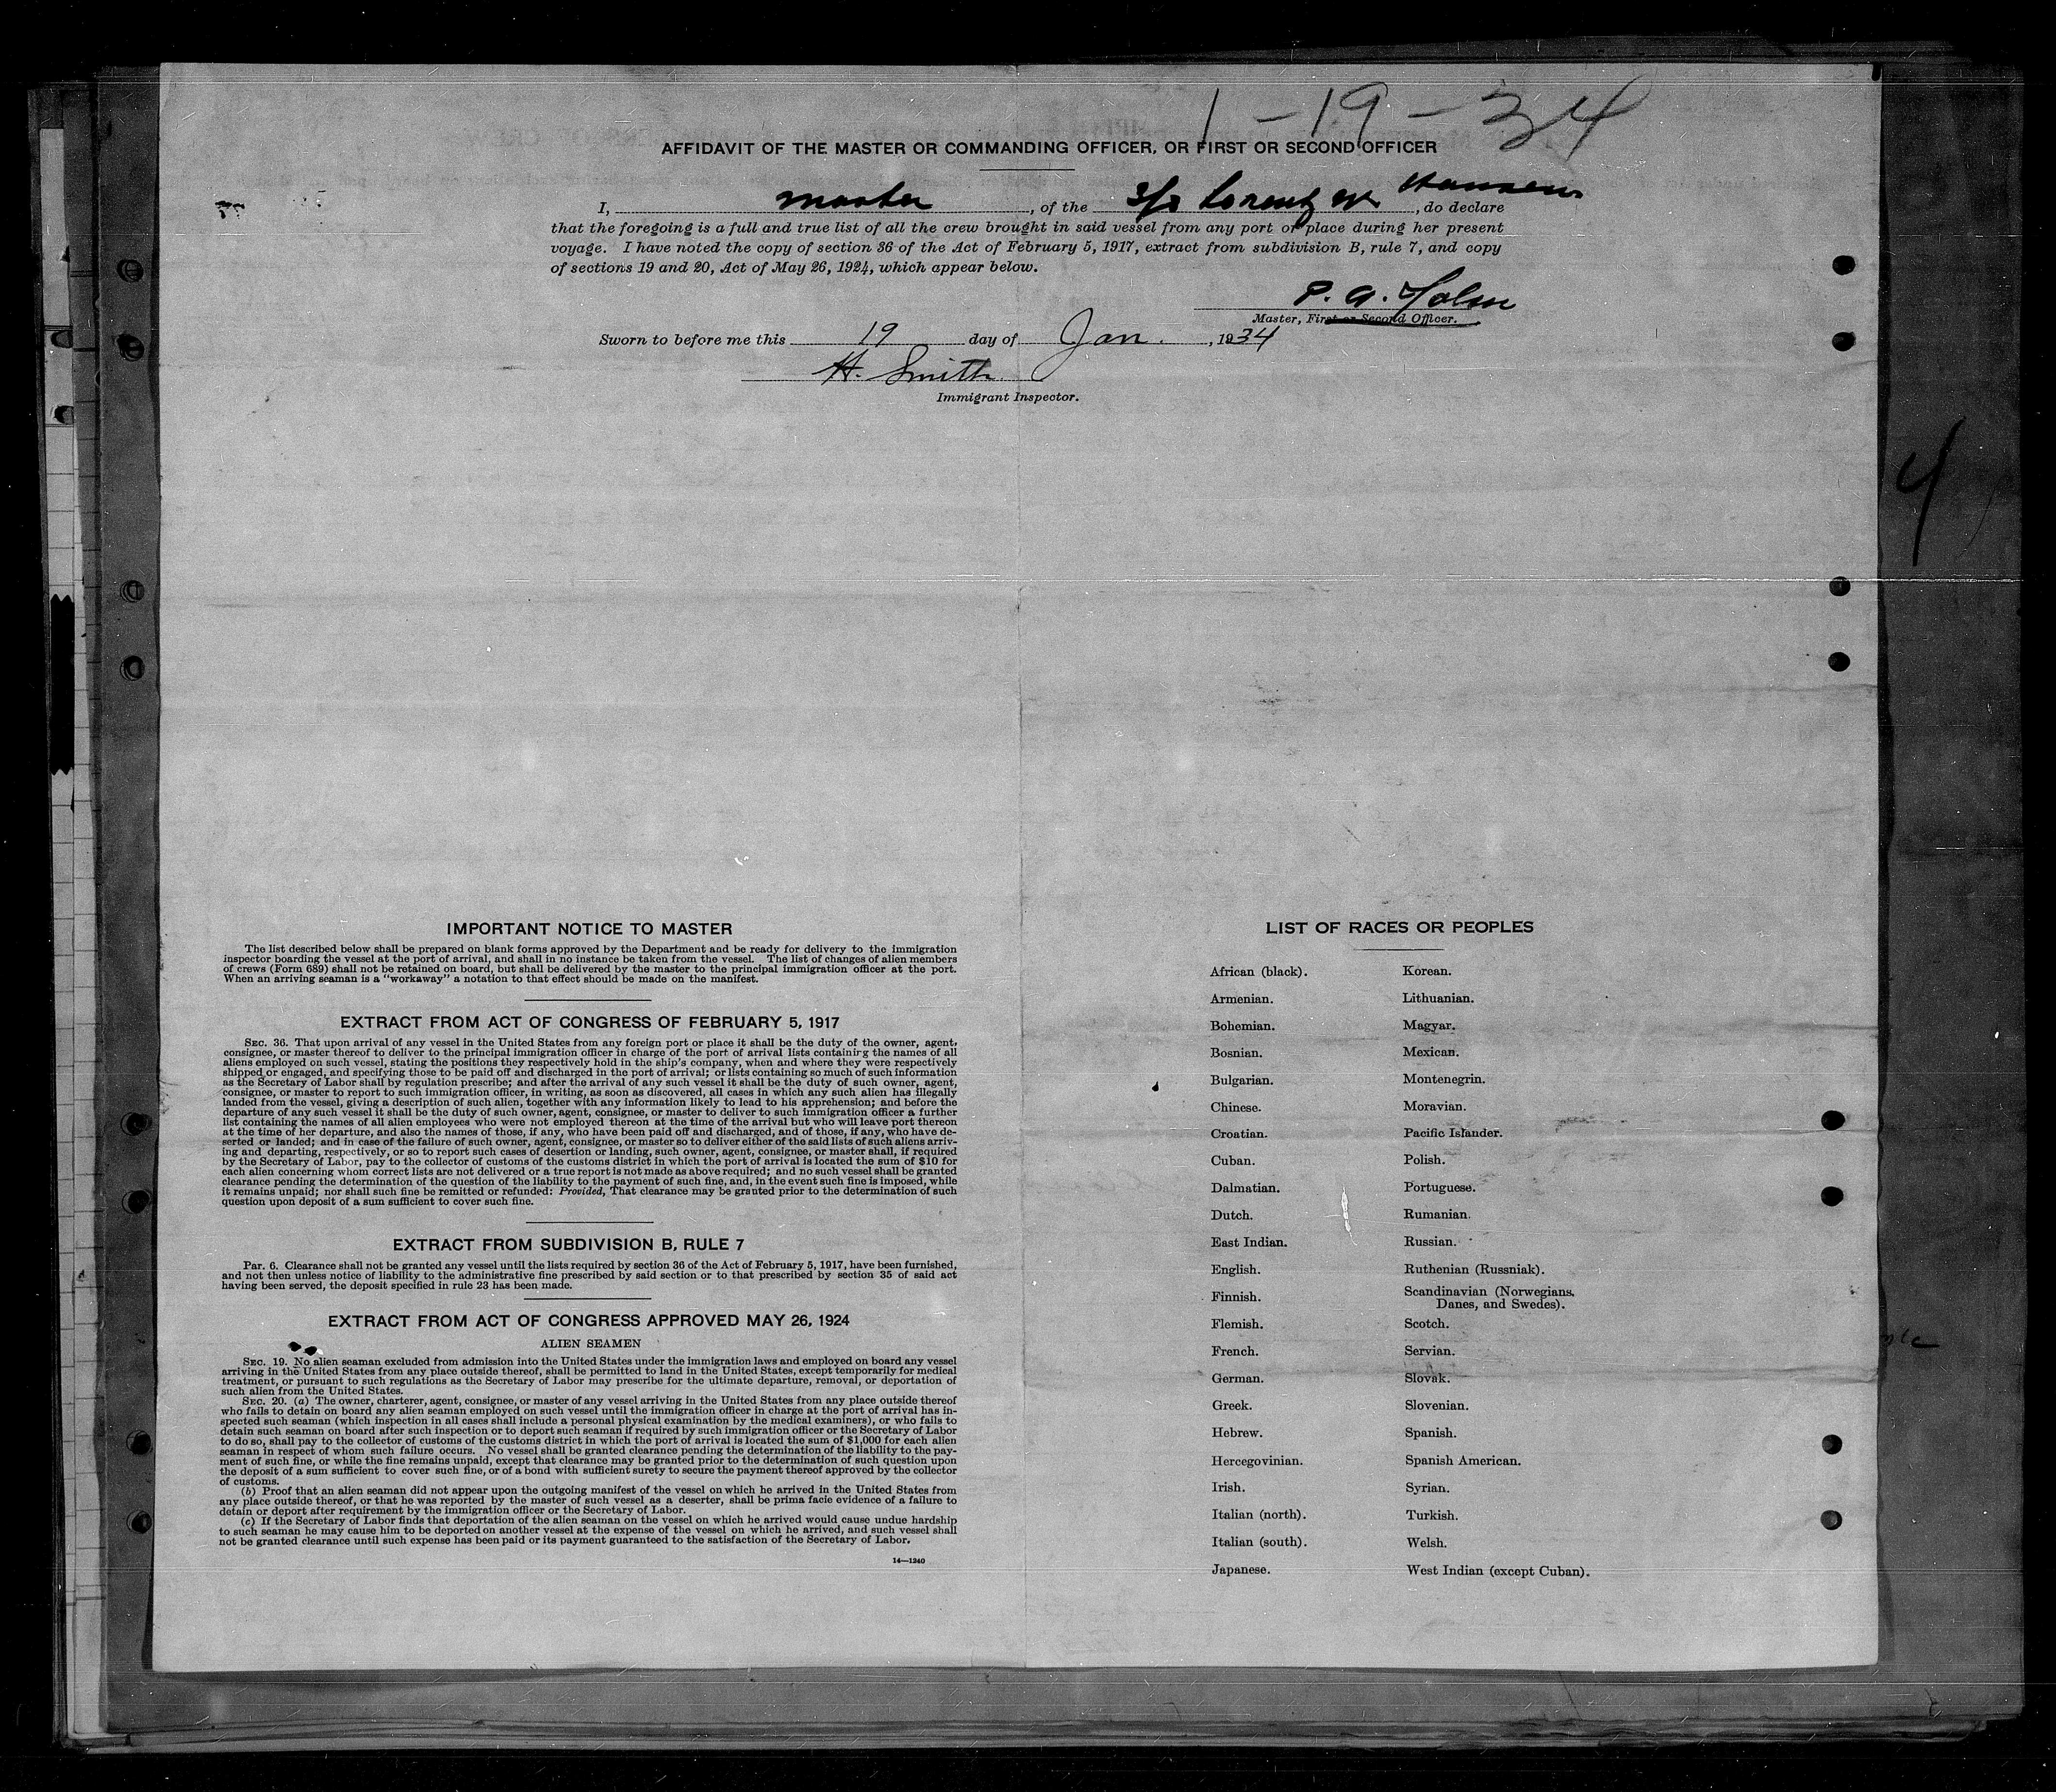 1-19-34
AFFIDAVIT OF THE MASTER OR COMMANDING OFFICER, OR FIRST OR SECOND OFFICER
I, master, of the S/S Lorentz W. Hansen, do declare
that the foregoing is a full and true list of all the crew brought in said vessel from any port or place during her present
voyage. I have noted the copy of section 36 of the Act of February 5, 1917, extract from subdivision B, rule 7, and copy
of sections 19 and 20, Act of May 26, 1924, which appear below.
P. A.
Master, First or Second Officer.
Sworn to before me this 19 day of Jan., 1934
H. Smith
Immigrant Inspector.
4
IMPORTANT NOTICE TO MASTER
The list described below shall be prepared on blank forms approved by the Department and be ready for delivery to the immigration
inspector boarding the vessel at the port of arrival, and shall in no instance be taken from the vessel. The list of changes of alien members
of crews (Form 689) shall not be retained on board, but shall be delivered by the master to the principal immigration officer at the port.
When an arriving seaman is a "workaway" a notation to that effect should be made on the manifest.
EXTRACT FROM ACT OF CONGRESS OF FEBRUARY 5, 1917
SEC. 36. That upon arrival of any vessel in the United States from any foreign port or place it shall be the duty of the owner, agent,
consignee, or master thereof to deliver to the principal immigration officer in charge of the port of arrival lists containing the names of all
aliens employed on such vessel, stating the positions they respectively hold in the ship's company, when and where they were respectively
shipped or engaged, and specifying those to be paid off and discharged in the port of arrival; or lists containing so much of such information
as the Secretary of Labor shall by regulation prescribe; and after the arrival of any such vessel it shall be the duty of such owner, agent,
consignee, or master to report to such immigration officer, in writing, as soon as discovered, all cases in which any such alien has illegally
landed from the vessel, giving a description of such alien, together with any information likely to lead to his apprehension; and before the
departure of any such vessel it shall be the duty of such owner, agent, consignee, or master to deliver to such immigration officer a further
list containing the names of all alien employees who were not employed thereon at the time of the arrival but who will leave port thereon
at the time of her departure, and also the names of those, if any, who have been paid off and discharged, and of those, if any, who have de-
serted or landed; and in case of the failure of such owner, agent, consignee, or master so to deliver either of the said lists of such aliens arriv-
ing and departing, respectively, or so to report such cases of desertion or landing, such owner, agent, consignee, or master shall, if required
by the Secretary of Labor, pay to the collector of customs of the customs district in which the port of arrival is located the sum of $10 for
each alien concerning whom correct lists are not delivered or a true report is not made as above required; and no such vessel shall be granted
clearance pending the determination of the question of the liability to the payment of such fine, and, in the event such fine is imposed, while
it remains unpaid; nor shall such fine be remitted or refunded: Provided, That clearance may be granted prior to the determination of such
question upon deposit of a sum sufficient to cover such fine.
EXTRACT FROM SUBDIVISION B, RULE 7
PAR. 6. Clearance shall not be granted any vessel until the lists required by section 36 of the Act of February 5, 1917, have been furnished,
and not then unless notice of liability to the administrative fine prescribed by said section or to that prescribed by section 35 of said act
having been served, the deposit specified in rule 23 has been made.
EXTRACT FROM ACT OF CONGRESS APPROVED MAY 26, 1924
ALIEN SEAMEN
SEC. 19. No alien seaman excluded from admission into the United States under the immigration laws and employed on board any vessel
arriving in the United States from any place outside thereof, shall be permitted to land in the United States, except temporarily for medical
treatment, or pursuant to such regulations as the Secretary of Labor may prescribe for the ultimate departure, removal, or deportation of
such alien from the United States.
SEC. 20. (a) The owner, charterer, agent, consignee, or master of any vessel arriving in the United States from any place outside thereof
who fails to detain on board any alien seaman employed on such vessel until the immigration officer in charge at the port of arrival has in-
spected such seaman (which inspection in all cases shall include a personal physical examination by the medical examiners), or who fails to
detain such seaman on board after such inspection or to deport such seaman if required by such immigration officer or the Secretary of Labor
to do so, shall pay to the collector of customs of the customs district in which the port of arrival is located the sum of $1,000 for each alien
seaman in respect of whom such failure occurs. No vessel shall be granted clearance pending the determination of the liability to the pay-
ment of such fine, or while the fine remains unpaid, except that clearance may be granted prior to the determination of such question upon
the deposit of a sum sufficient to cover such fine, or of a bond with sufficient surety to secure the payment thereof approved by the collector
of customs.
(b) Proof that an alien seaman did not appear upon the outgoing manifest of the vessel on which he arrived in the United States from
any place outside thereof, or that he was reported by the master of such vessel as a deserter, shall be prima facie evidence of a failure to
detain or deport after requirement by the immigration officer or the Secretary of Labor.
(c) If the Secretary of Labor finds that deportation of the alien seaman on the vessel on which he arrived would cause undue hardship
to such seaman he may cause him to be deported on another vessel at the expense of the vessel on which he arrived, and such vessel shall
not be granted clearance until such expense has been paid or its payment guaranteed to the satisfaction of the Secretary of Labor.
14—1240
LIST OF RACES OR PEOPLES
African (black).
Armenian.
Bohemian.
Bosnian.
Bulgarian.
Chinese.
Croatian.
Cuban.
Dalmatian.
Dutch.
East Indian.
English.
Finnish.
Flemish.
French.
German.
Greek.
Hebrew.
Hercegovinian.
Irish.
Italian (north).
Italian (south).
Japanese.
Korean.
Lithuanian.
Magyar.
Mexican.
Montenegrin.
Moravian.
Pacific Islander.
Polish.
Portuguese.
Rumanian.
Russian.
Ruthenian (Russniak).
Scandinavian (Norwegians,
Danes, and Swedes).
Scotch.
Servian.
Slovak.
Slovenian.
Spanish.
Spanish American.
Syrian.
Turkish.
Welsh.
West Indian (except Cuban).